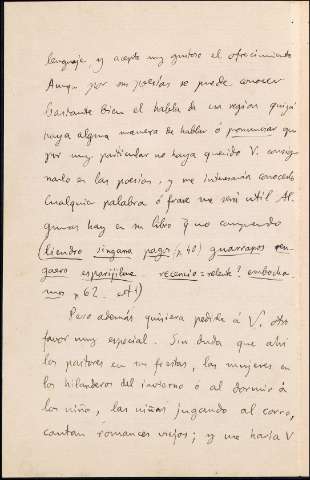 lenguaje, y acepto muy gustoso el ofrecimiento
Aunq. por sus poesías se puede conocer
bastante bien el habla de un region quizá
haya alguna manera de hablar ó pronunciar que
por muy particular no haya querido V. consig-
narlo en las poesías, y me interesaria conocerlo
Cualquier palabra ó frase me será util Al-
gunas hay en su libro q no comprendo
(liendro singana pago p. 40) guarrapos
esparijilme. recencio = relente? embocha-
p 62.
Pero además quisiera pedirle á V. otro
favor muy especial. Sin duda que ahi
los pastores en su fiestas, las mujeres en
los hilanderos del invierno ó al dormir á
los niños, las niñas jugando al corro,
cantan romances viejos; y me haría V